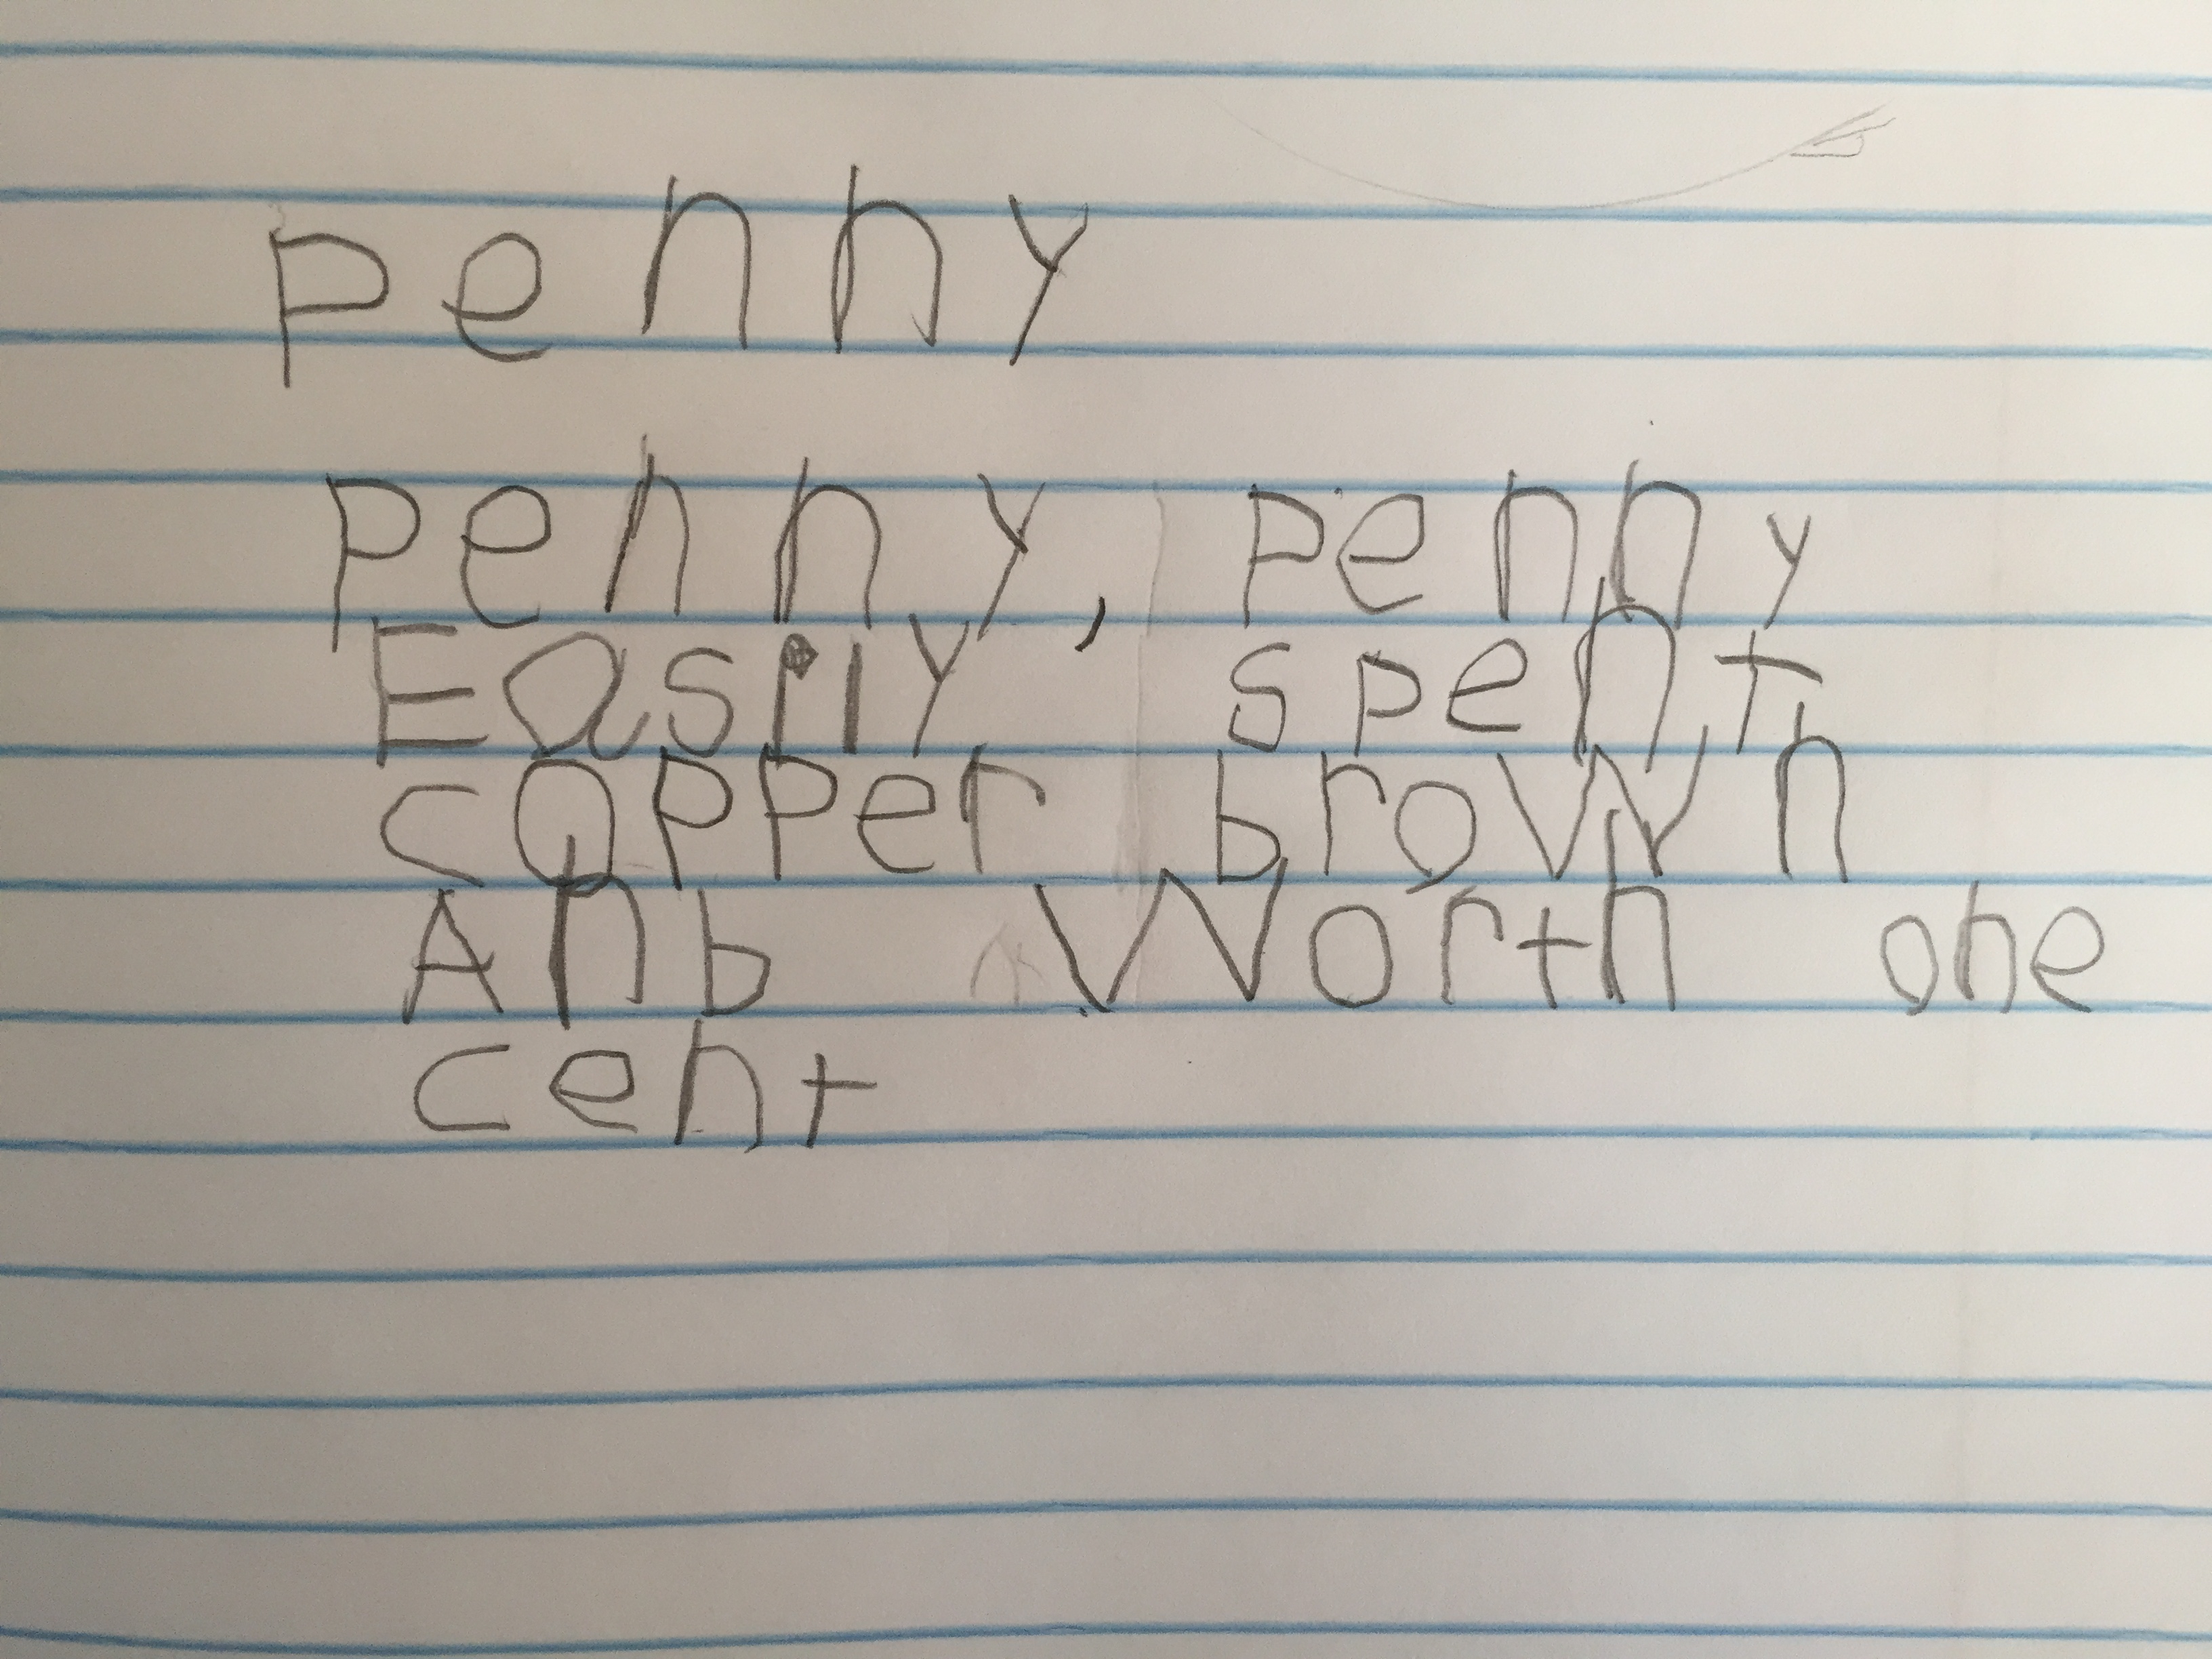 penny
penny, penny
Easily spent
copper brown
Anb Worth one
cent